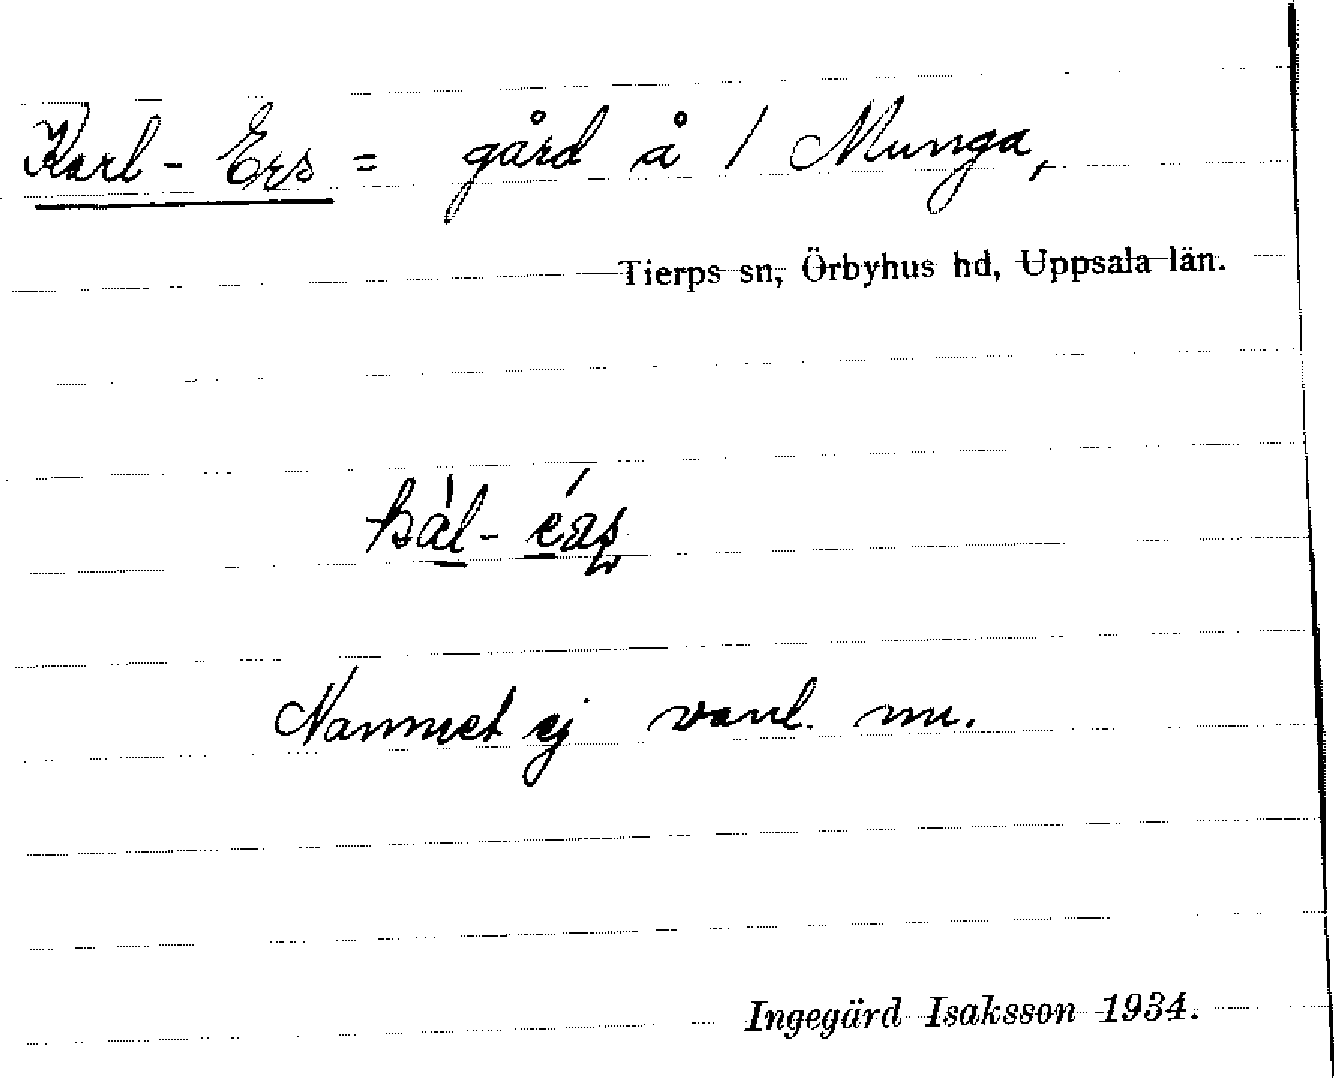 Karl-Ers = gård å / Munga,
Tierps sn, Örbyhus hd, Uppsala län.
Namnet ej vanl. nu.
Ingegärd Isaksson 1934.